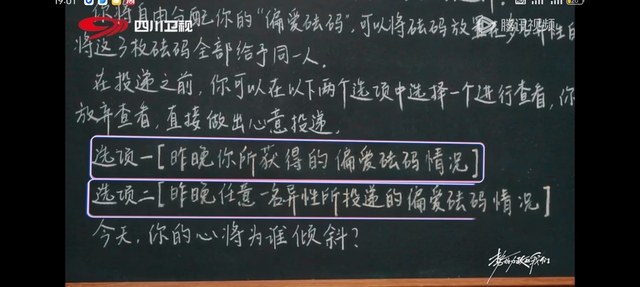 19:01
四川卫视
腾讯视频
你将自由分配你的“偏爱砝码”,可以将砝码放
异性的
将这3枚砝码全部给予同一人.
在投递之前,你可以在以下两个选项中选择一个进行查看,你
放弃查看,直接做出心意投递.
选项一[昨晚你所获得的偏爱砝码情况]
选项二[昨晚任意一名异性所投递的偏爱砝码情况]
今天,你的心将为谁倾斜?